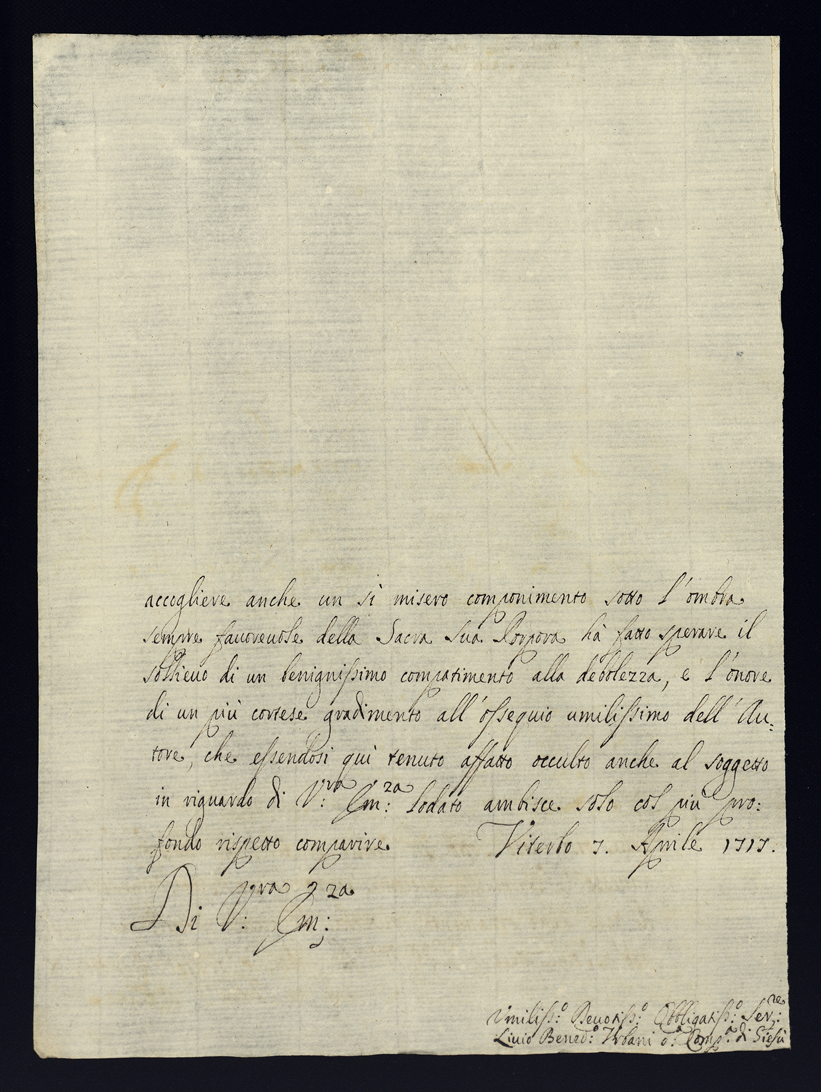 accogliere anche un sì misero componimento sotto l'ombra
sempre fauoreuole della Sacra Sua Porpora hà fatto sperare il
sollieuo di un benignissimo compatimento alla debolezza, e l'onore
di un più cortese gradimento all'ossequio umilissimo dell'Au:
tore, che essendosi quì tenuto affatto occulto anche al soggetto
in riguardo di V:ra Em:za lodato ambisce solo col più pro:
fondo rispetto comparire Viterbo 7. Aprile 1717.
Di V:ra Em:za
Umiliss:o Deuotiss:o Obbligatiss:o Ser:re
Liuio Bened:o Urbani d:a Comp:a di Giesù